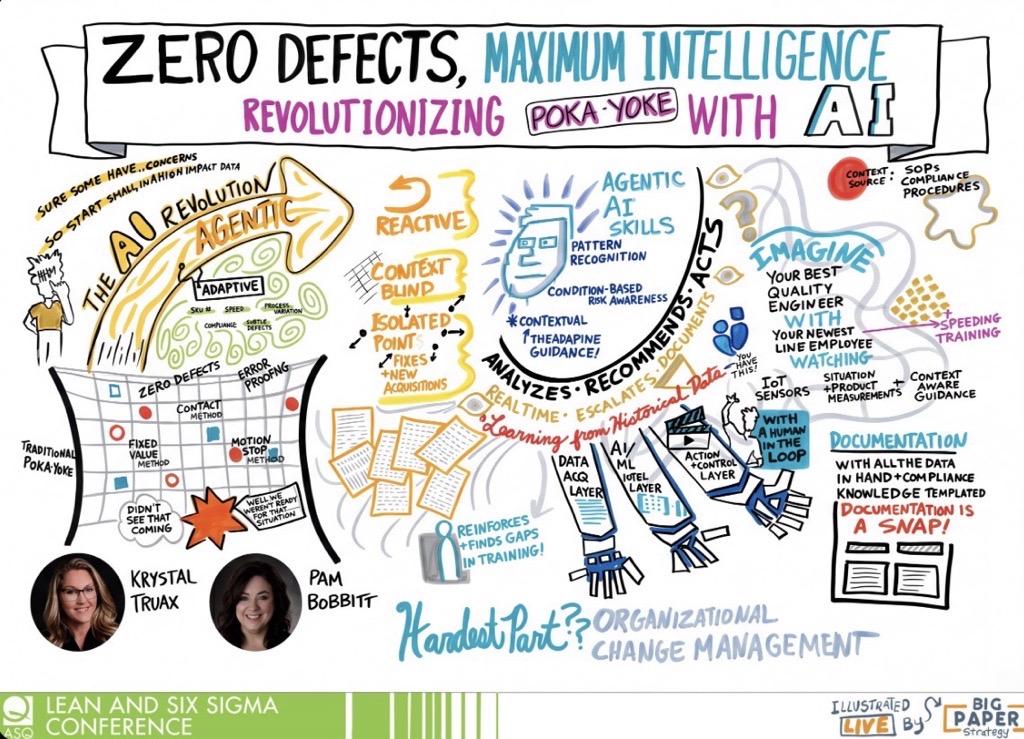 ZERO DEFECTS, MAXIMUM INTELLIGENCE
REVOLUTIONIZING POKA-YOKE WITH AI
SURE SOME HAVE..CONCERNS
SO START SMALL, IN A HIGH IMPACT DATA
THE AI REVOLUTION
AGENTIC
ADAPTIVE
SKU #
SPEED
PROCESS
VARIATION
COMPLIANCE
SUBTLE
DEFECTS
TRADITIONAL
POKA-YOKE
ZERO DEFECTS
ERROR
PROOFNG
CONTACT
METHOD
FIXED
VALUE
METHOD
MOTION
STOP
METHOD
DIDN'T
SEE THAT
COMING
WELL WE
WEREN'T READY
FOR THAT
SITUATION
KRYSTAL
TRUAX
PAM
BOBBITT
REACTIVE
CONTEXT
BLIND
ISOLATED
POINTS
+FIXES
+NEW
ACQUISITIONS
AGENTIC
AI
SKILLS
PATTERN
RECOGNITION
CONDITION-BASED
RISK AWARENESS
*CONTEXTUAL
↑ THEADAPINE
GUIDANCE!
ANALYZES · RECOMMENDS · ACTS
REALTIME · ESCALATES · DOCUMENTS
Learning from Historical Data
DATA
ACQ
LAYER
AI
ML
LAYER
ACTION
+CONTROL
LAYER
WITH
A HUMAN
IN THE
LOOP
YOU
HAVE
THIS!
REINFORCES
+FINDS GAPS
IN TRAINING!
Hardest Part?? ORGANIZATIONAL
CHANGE MANAGEMENT
CONTEXT
SOURCE:
SOPs
COMPLIANCE
PROCEDURES
IMAGINE
YOUR BEST
QUALITY
ENGINEER
WITH
YOUR NEWEST
LINE EMPLOYEE
WATCHING
+
SPEEDING
TRAINING
IOT
SENSORS
SITUATION
+PRODUCT
MEASUREMENTS
+
CONTEXT
AWARE
GUIDANCE
DOCUMENTATION
WITH ALL THE DATA
IN HAND+COMPLIANCE
KNOWLEDGE TEMPLATED
DOCUMENTATION IS
A SNAP!
ASQ
LEAN AND SIX SIGMA
CONFERENCE
ILLUSTRATED
LIVE BY
BIG
PAPER
Strategy